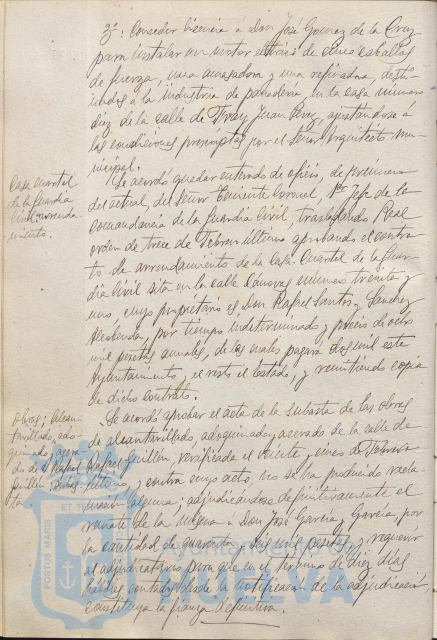 3º: Conceder licencia a Don José Gomez de la Cruz
para instalar un motor eléctrico de cinco caballos
de fuerza, una amasadora y una refinadora, desti-
nados a la industria de panadería en la casa número
diez de la calle de Fray Juan Perez, ajustandose a
las condiciones prescriptas por el Señor Arquitecto mu-
nicipal.
Casa cuartel
de la Guardia
Civil: arrenda-
miento.
Se acordó quedar enterado de oficio, de primero
del actual, del Señor Teniente Coronel, 1er Jefe de la
Comandancia de la Guardia Civil, trasladando Real
orden de trece de Febrero último aprobando el contra-
to de arrendamiento de la Casa Cuartel de la Guar-
dia Civil sita en la calle Cánovas número treinta y
uno, cuyo propietario es Don Rafael Santos y Sanchez
por tiempo indeterminado y precio de ocho
mil pesetas anuales, de las cuales pagará dos mil este
Ayuntamiento, y el resto el Estado, y remitiendo copia
de dicho contrato.
Obras; Alcan-
tarillado, ado-
quinado y acera-
do de Rafael
Guillén: Subas-
ta
Se acordó aprobar el acta de la subasta de las obras
de alcantarillado, adoquinado y acerado de la calle de
Rafael Guillén, verificada el veinte y cinco de Febrero
último, y contra cuyo acto, no se ha producido recla-
mación alguna; adjudicándose definitivamente el
remate de la misma a Don José García y García, por
la cantidad de cuarenta y seis mil pesetas, y requerir
al adjudicatario para que en el término de diez días
hábiles, contados desde la notificación de la adjudicación,
constituya la fianza definitiva.
PORTUS MARIS
ET TE
Ayuntamiento de
HUELVA